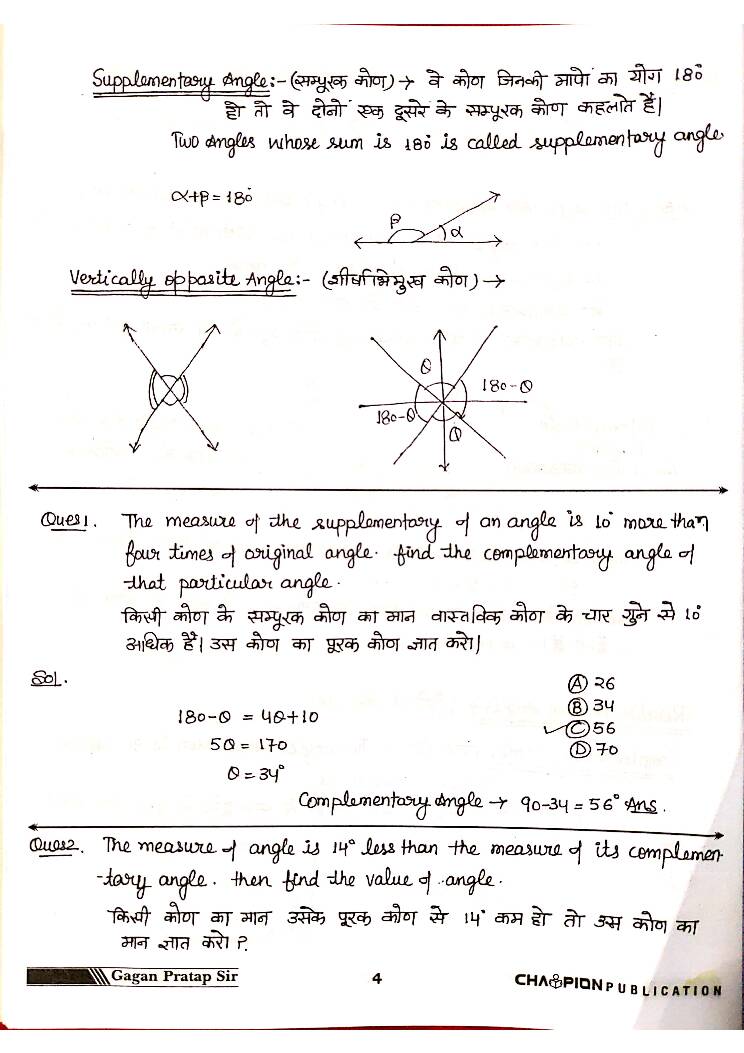 Supplementary Angle:- (सम्पूरक कोण) → वे कोण जिनकी मापो का योग 180°
हो तो वे दोनों एक दूसरे के सम्पूरक कोण कहलाते हैं।
Two Angles whose sum is 180° is called supplementary angle.
α+β = 180°
β
α
Vertically opposite Angle:- (शीर्षाभिमुख कोण) →
θ
180-θ
180-θ
θ
Ques1. The measure of the supplementary of an angle is 10° more than
four times of original angle. find the complementary angle of
that particular angle.
किसी कोण के सम्पूरक कोण का मान वास्तविक कोण के चार गुने से 10°
अधिक है। उस कोण का पूरक कोण ज्ञात करो।
Sol.
Ⓐ 26
Ⓑ 34
180-θ = 4θ+10
✓Ⓒ 56
5θ = 170
Ⓓ 70
θ = 34°
Complementary Angle → 90-34 = 56° Ans.
Ques2. The measure of angle is 14° less than the measure of its complemen-
-tary angle. then find the value of angle.
किसी कोण का मान उसके पूरक कोण से 14° कम हो तो उस कोण का
मान ज्ञात करो ?
Gagan Pratap Sir 4 CHAMPION PUBLICATION